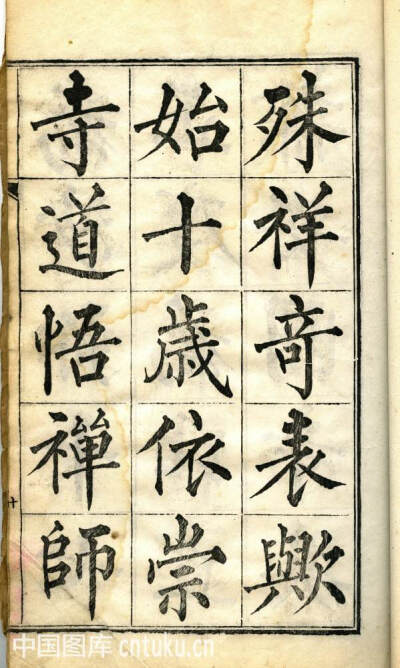 殊祥奇表歟
始十歲依崇
寺道悟禪師
十
中国图库 cntuku.cn